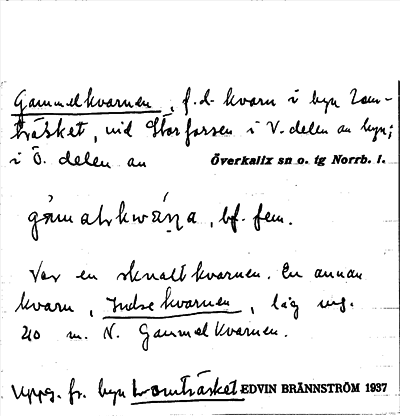 Gammelkvarnen, f.d. kvarn i byn Lom-
träsket, vid Storforsen i V. delen av byn;
i Ö. delen av Överkalix sn o. tg Norrb. l.
bf. fem.
Var en skvaltkvarn. En annan
kvarn, Indsekvarnen, låg ung.
40 m. N. Gammelkvarnen.
Uppg. fr. byn Lomträsket. EDVIN BRÄNNSTRÖM 1937